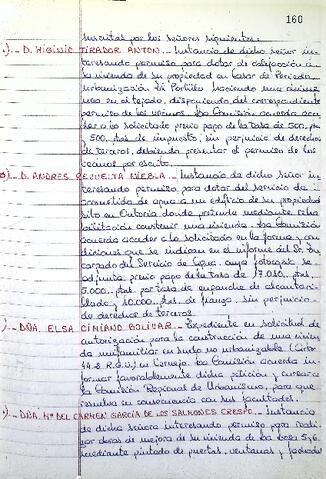 160
suscritas por los señores siguientes:
- D. HIGINIO TIRADOR ANTON.- Instancia de dicho señor in-
teresando permiso para dotar de calefacción a
la vivienda de su propiedad en
Urbanización El Portillo, haciendo una chime-
nea en el tejado, disponiendo del correspondiente
permiso de los vecinos. La Comisión acuerda acce-
der a lo solicitado previo pago de la tasa de 500 ptas.
500 ptas. de impuesto, sin perjuicio de derechos
de terceros, debiendo presentar el permiso de los
vecinos por escrito.
- D. ANDRES REVUELTA NIEBLA.- Instancia de dicho señor in-
teresando permiso para dotar del servicio de a-
cometida de agua a un edificio de su propiedad
sito en Ontoria donde pretende mediante reha-
bilitación construir una vivienda. La Comisión
acuerda acceder a lo solicitado en la forma y con-
diciones que se indican en el informe del Sr. En-
cargado del Servicio de Agua, cuya fotocopia se
adjunta previo pago de la tasa de 17.010 ptas.
5.000 ptas. por tasa de enganche de alcantari-
llado y 10.000 ptas. de fianza, sin perjuicio
de derechos de terceros.
- DÑA. ELSA CIMIANO BOLIVAR.- Expediente en solicitud de
autorización para la construcción de una vivien-
da unifamiliar en suelo no urbanizable (Art.
44-2 R.G.U.) en Cerrazo. La Comisión acuerda in-
formar favorablemente dicha petición y cursar a
la Comisión Regional de Urbanismo, para que
resuelva en consecuencia con sus facultades.
- DÑA. Mª DEL CARMEN GARCÍA DE LOS SALMONES CRESPO.- Instancia
de dicha señora interesando permiso para reali-
zar obras de mejora de su vivienda de
mediante pintado de puertas, ventanas y fachada